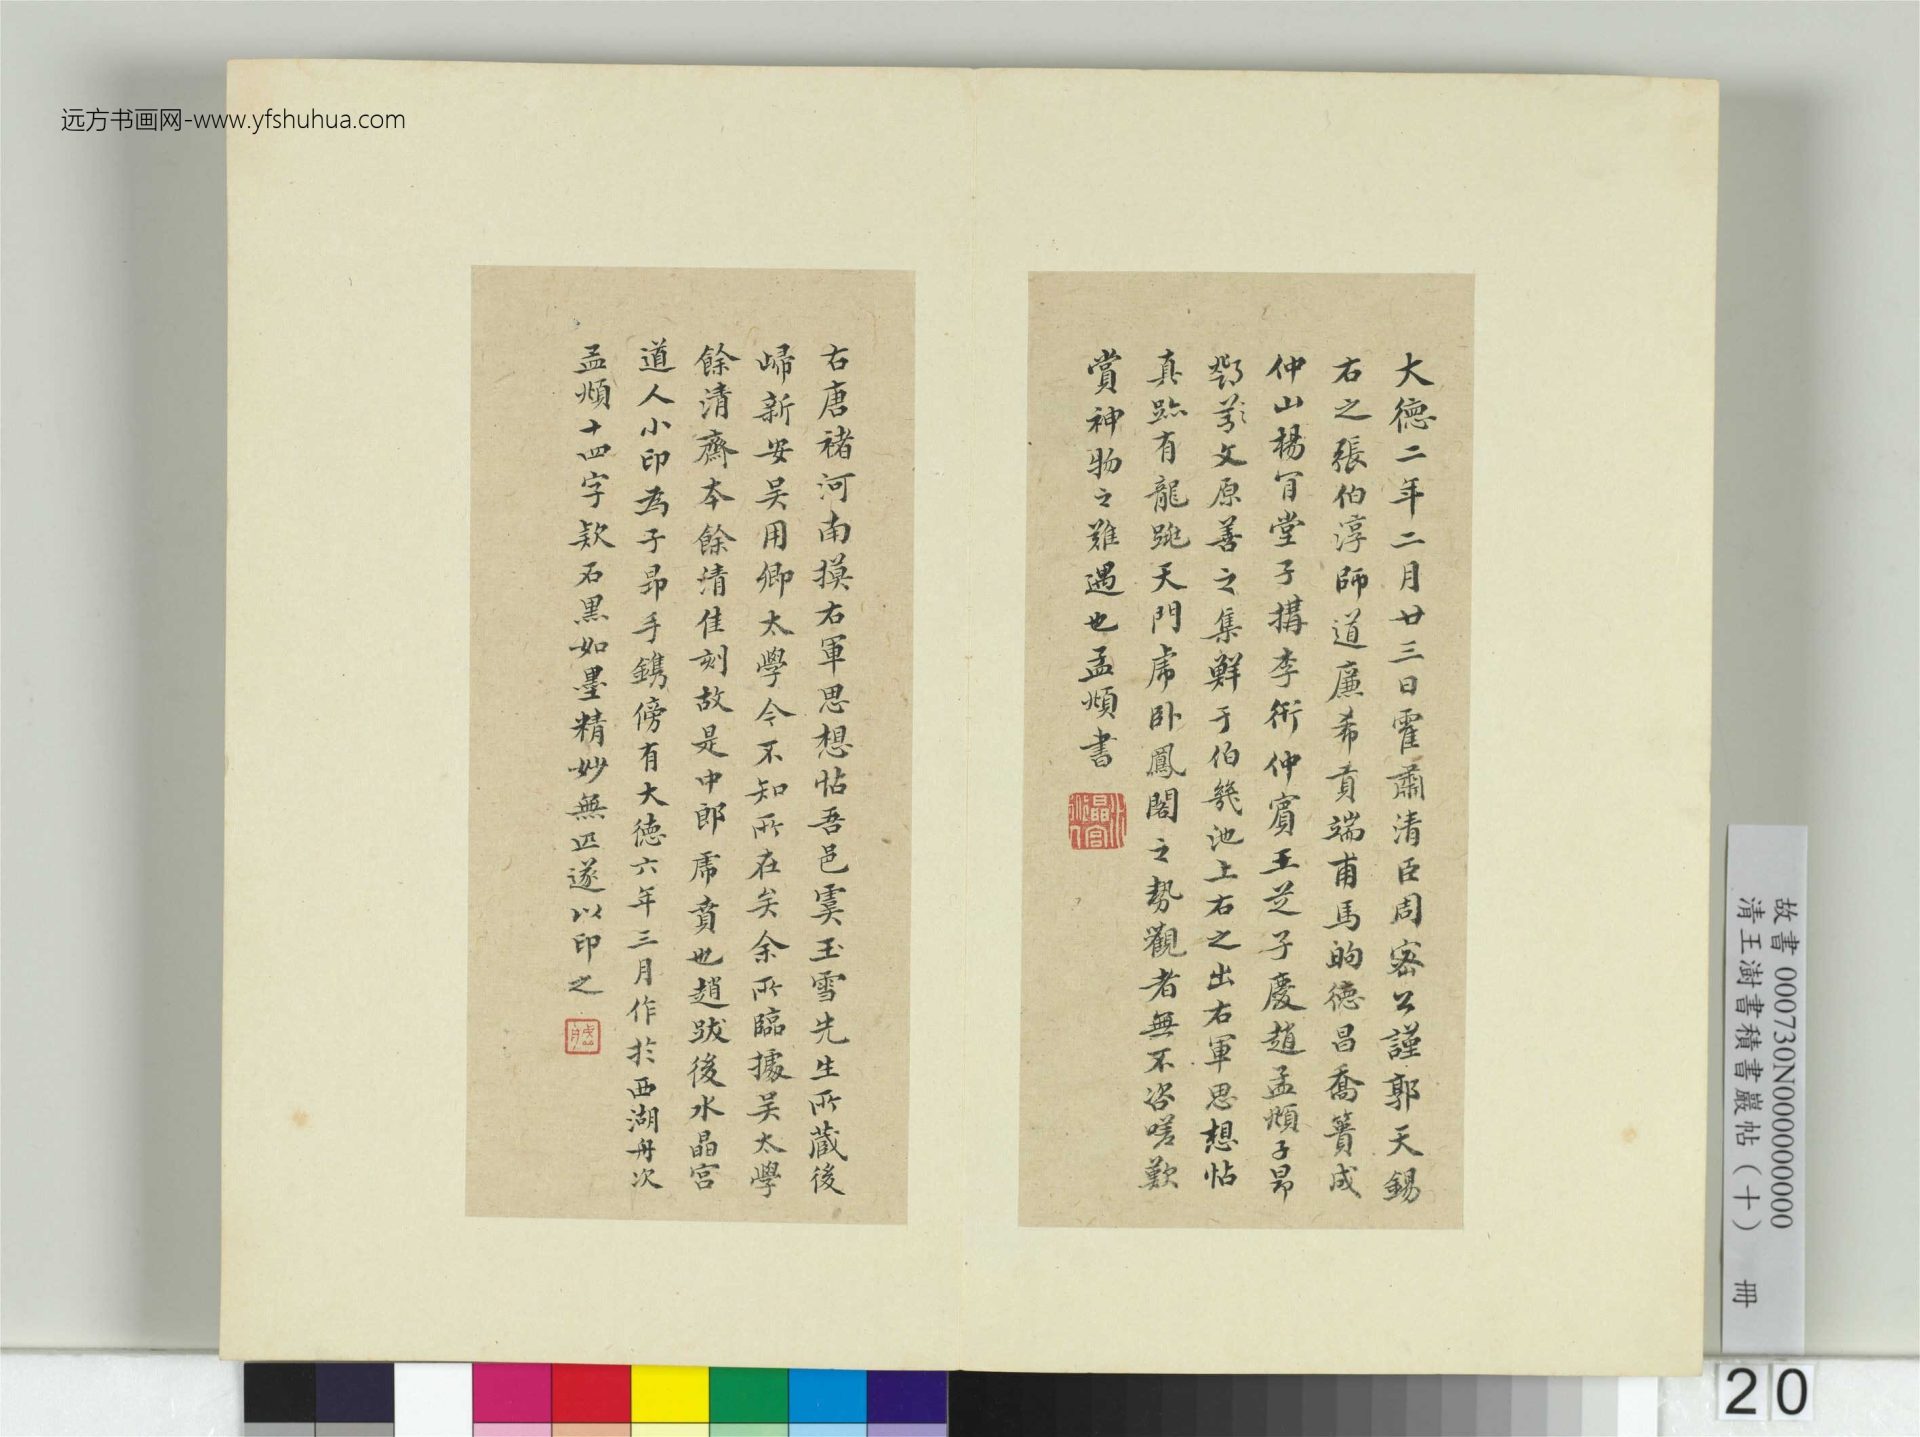 远方书画网-www.yfshuhua.com
大德二年二月廿三日霍肅清臣周密公謹郭天錫
右之張伯淳師道廉希貢端甫馬昫德昌喬簣成
仲山楊肎堂子構李衎仲賓王芝子慶趙孟頫子昂
鄧文原善之集鮮于伯幾池上右之出右軍思想帖
真跡有龍跳天門虎卧鳳閣之勢觀者無不咨嗟歎
賞神物之難遇也孟頫書
水晶宮
右唐褚河南摸右軍思想帖吾邑虞玉雪先生所藏後
歸新安吴用卿太學今不知所在矣余所臨據吴太學
餘清齋本餘清佳刻故是中郎虎賁也趙跋後水晶宮
道人小印為子昂手鐫傍有大德六年三月作於西湖舟次
孟頫十四字欵石黑如墨精妙無匹遂以印之
故書 000730N000000000
清王澍書積書巖帖（十） 冊
20